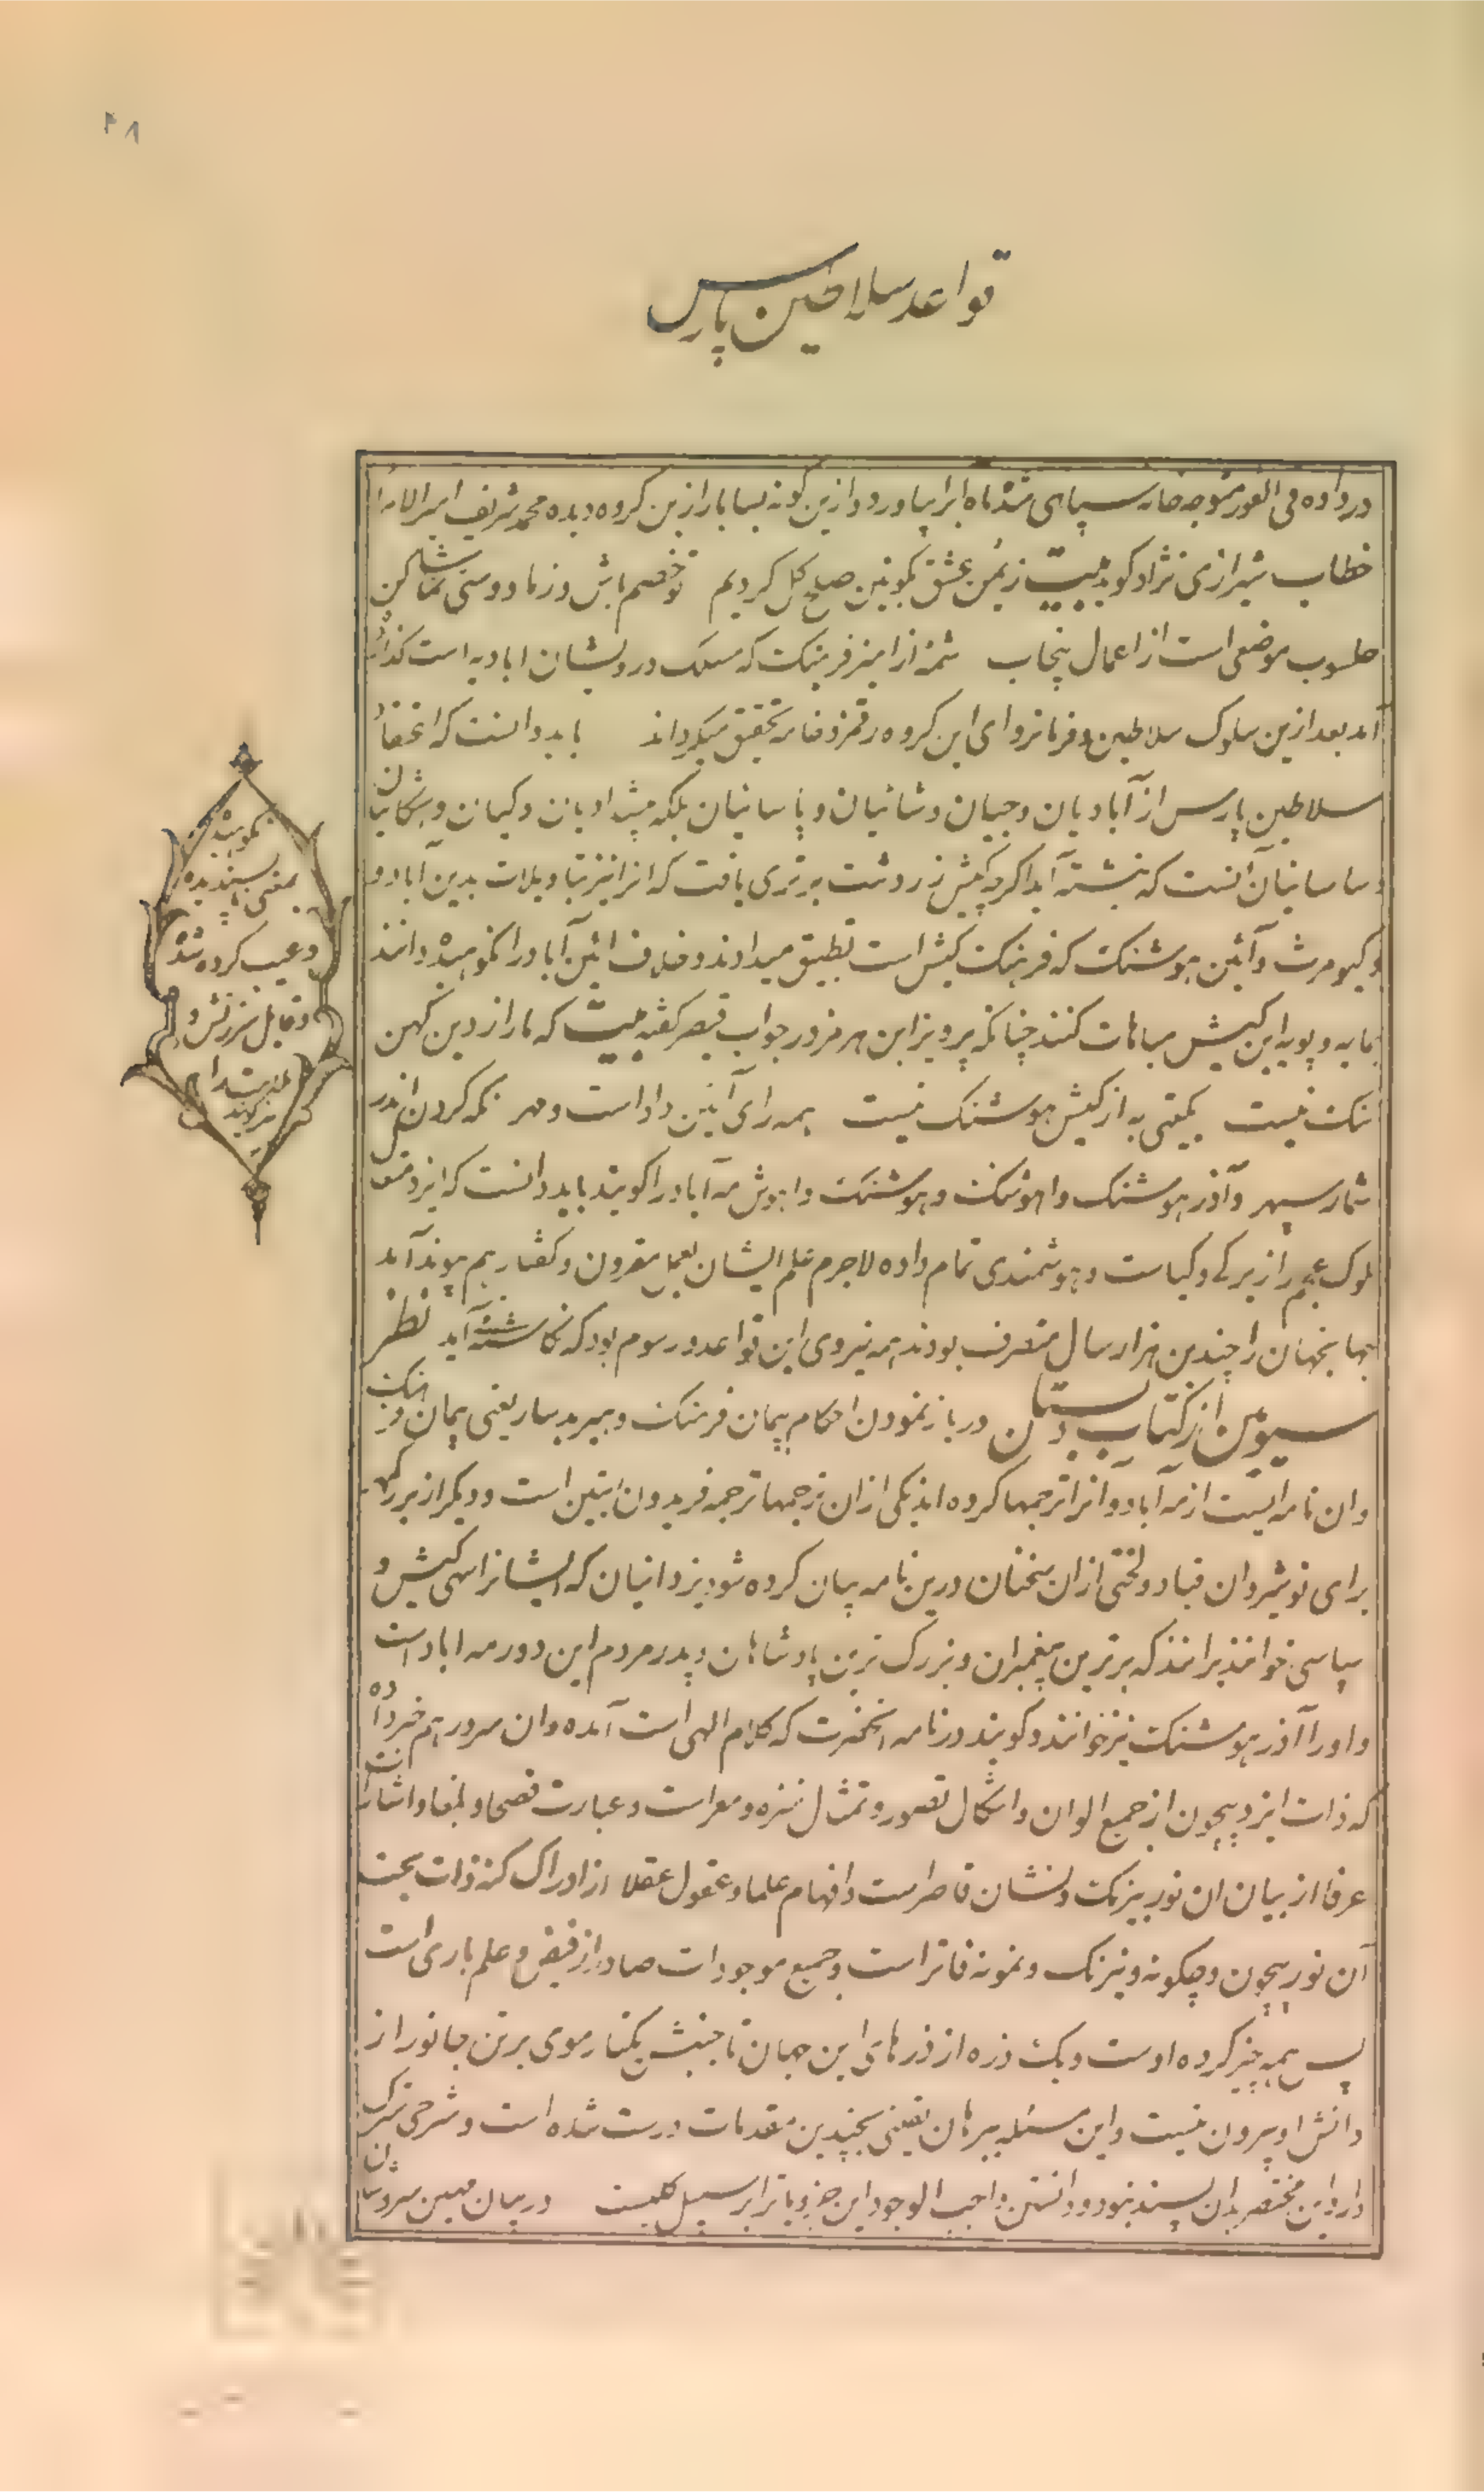 ۴۸
قواعد سلاطین پارس
در داده فی الفور متوجه خانه سپاهی شد ماه ابرا بیاورد و ازین گونه بسا بار ازین گروه دیده محمد شریف امیر الامرا
خطاب شیرازی نژاد گوید بیت ز یمن عشق بکونین صلح کل کردیم تو خصم باش و ز ما دوستی تماشا کن
موضعی است از اعمال پنجاب شمه از امیز فرهنک که مسلک درویشان ابادیه است گذارده
آمد بعد ازین سلوک سلاطین و فرمانروای این گروه رقمزد خامه تحقیق میگرداند باید دانست که اعتقاد
سلاطین پارس از آبادیان و جیان و شائیان و یاسانیان بلکه پیشدادیان و کیان و اشکانیان
و ساسانیان آنست که نبشته آید اگرچه کیش زردشت برتری یافت که انرا نیز بتاویلات بدین آباد و
و کیومرث و آئین هوشنک که فرهنک کیش است تطبیق میدادند و خلاف ائین آباد را نکوهیده دانند
بمایه و پویه این کیش مباهات کنند چنانکه پرویز ابن هرمز در جواب قیصر گفته بیت که ما را ز دین کهن
ننک نیست بگیتی به از کیش هوشنک نیست همه رای آئین داد است و مهر نگه کردن اندر
شمار سپهر و آذر هوشنک و اهوشنک و هوشنک و اهوش مه آباد را گویند باید دانست که ایزد متعال
ملوک عجم را زیرکی و کیاست و هوشمندی تمام داده لاجرم علم ایشان بعمل مقرون و گفتار بهم پیوند آمد
بها بجهان را چندین هزار سال متصرف بودند همه نیروی این قواعد و رسوم بود که نگاشته آید نظر
سیوم از کتاب دبستان در باز نمودن احکام پیمان فرهنک و هیربد سار یعنی پیمان و فرهنک
و ان نامه ایست از مه آباد و آنرا ترجمها کرده اند یکی ازان ترجمها ترجمه فریدون ابتین است و دیگر از بزرگمهر
برای نوشیروان قباد و لختی ازان سخنان درین نامه بیان کرده شود یزدانیان که ایشانرا سهی کیش و
سپاسی خوانند برانند که برترین پیغمبران و بزرک ترین پادشاهان و پدر مردم این دور مه اباد است
و او را آذر هوشنک نیز خوانند و گویند در نامه انحضرت که کلام الهی است آمده و ان سرور هم خبر داده
که ذات ایزد بیچون از جمیع الوان و اشکال تصور و تمثل منزه و معراست و عبارت فصحا و بلغا و اشارت
عرفا از بیان ان نور بیرنک و نشان قاصر است و افهام علما و عقول عقلا از ادراک کنه ذات بحت
آن نور بیچون و چگونه و نیرنک و نمونه فاتر است و جمیع موجودات صادر از فیض و علم باری است
پس همه چیز کرده اوست و یک ذره از ذرهای این جهان تا جنبش یکتار موی برتن جانور از
دانش او بیرون نیست و این مسئله ببرهان یقینی بچندین مقدمات درست شده است و شرحی شکرف
دارد این مختصر بدان پسند نبود و دانستن واجب الوجود این جزویات را بر سبیل کلیست در بیان مهین سروشان
نکوهیده
بمعنی ناپسندیده
و عیب کرده شده
و قابل سرزنش و